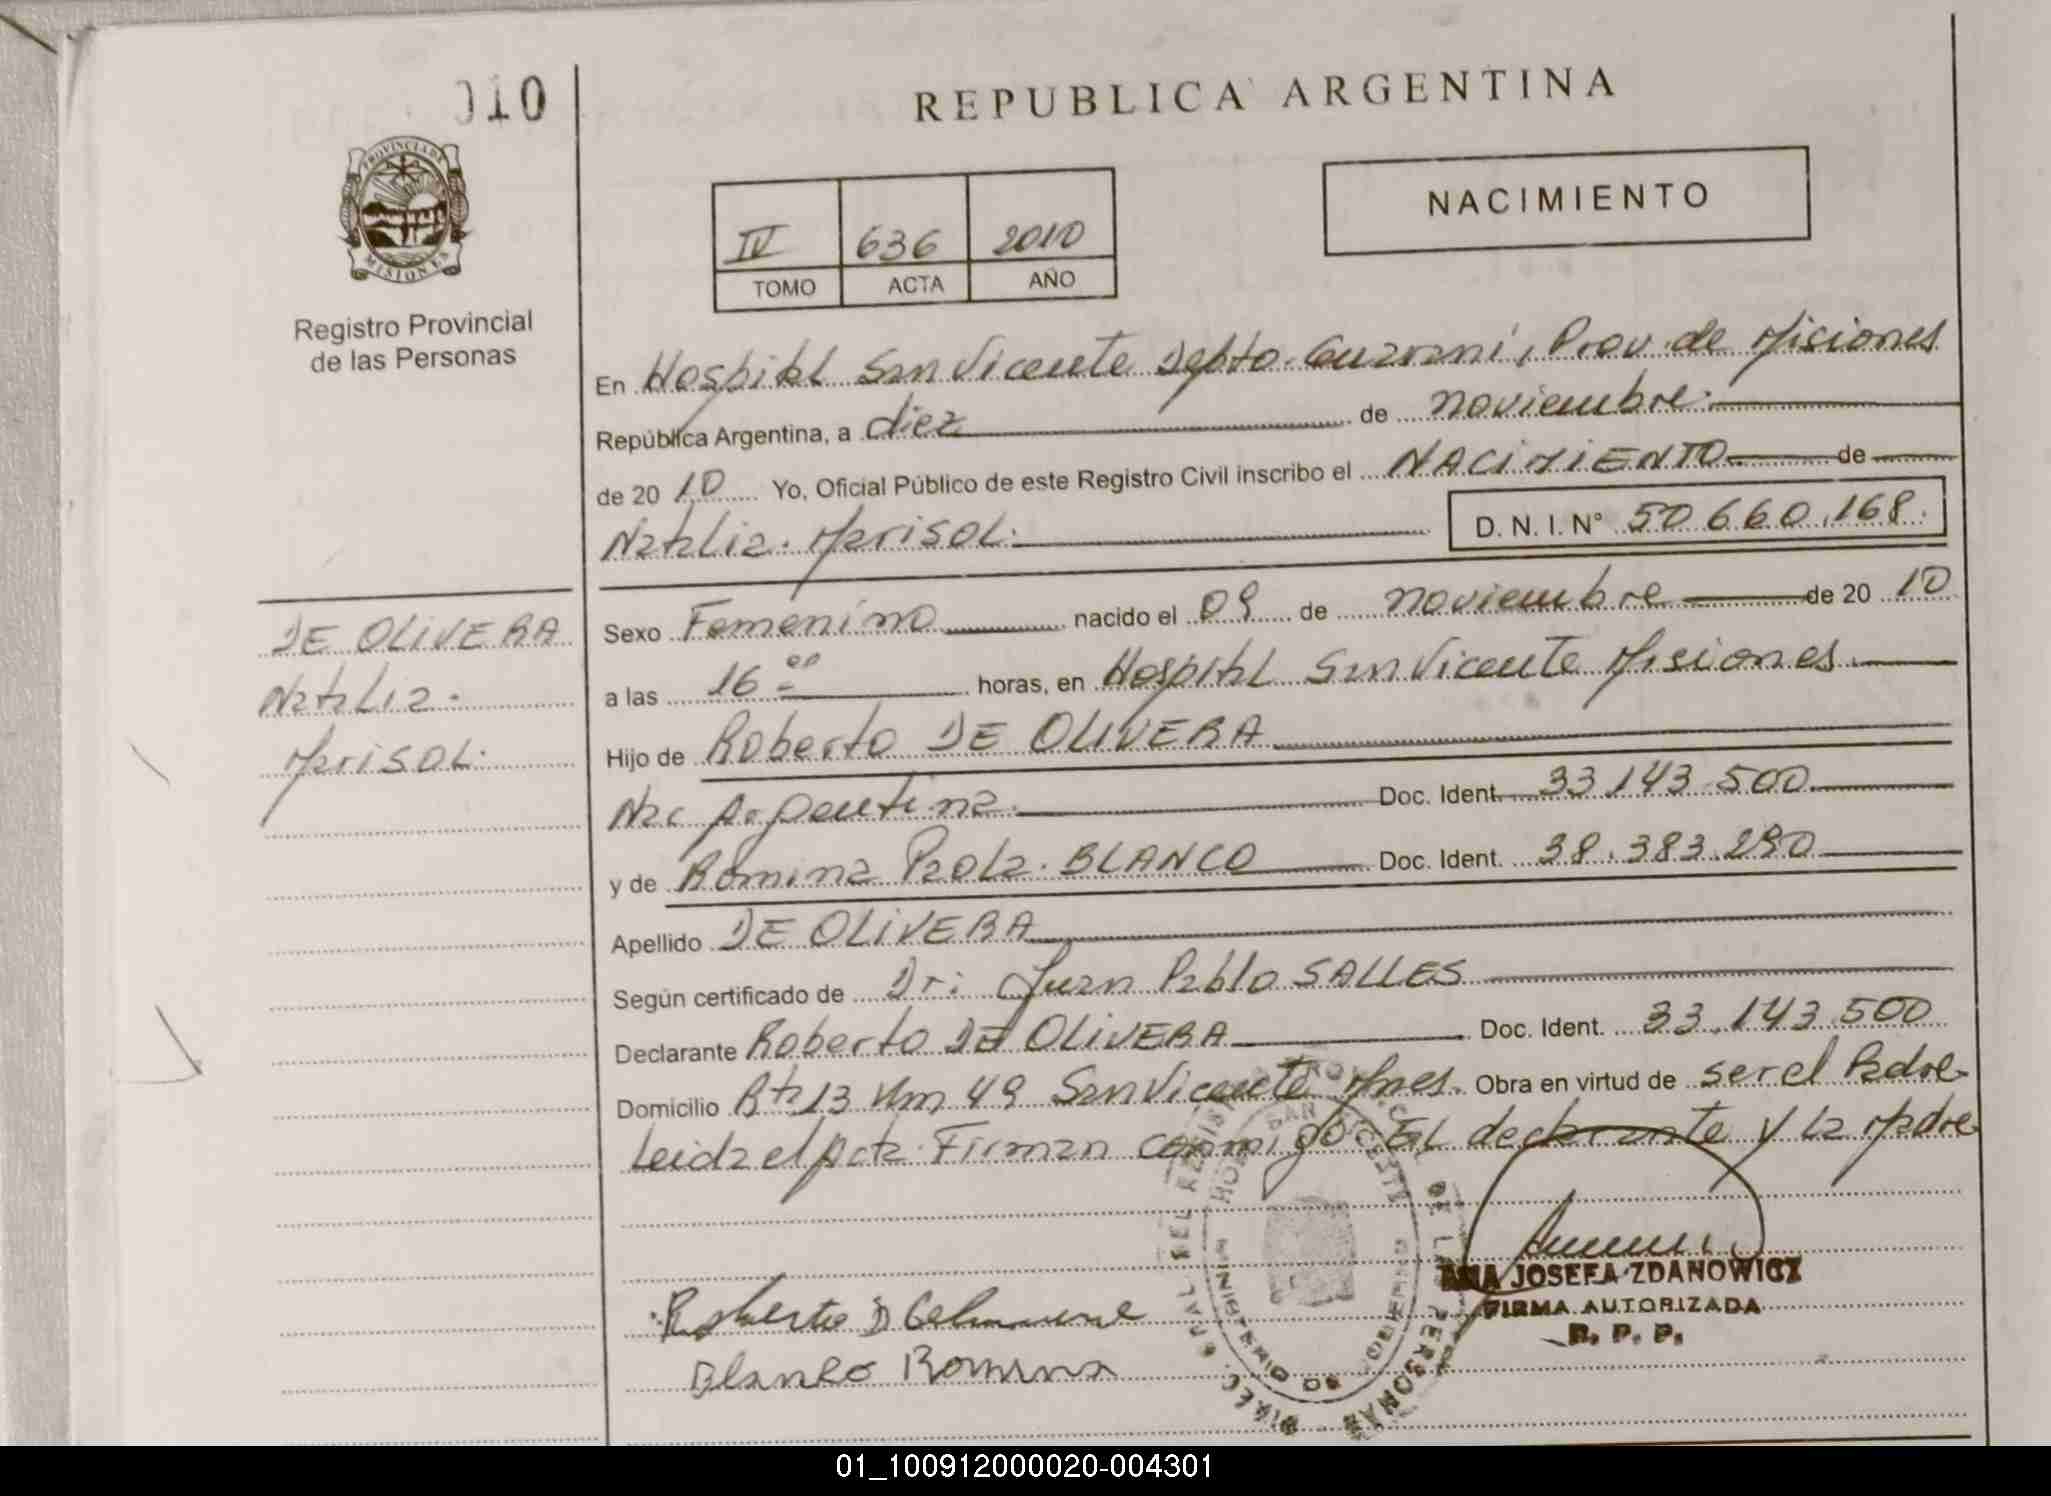 010
REPUBLICA ARGENTINA
PROVINCIA DE
MISIONES
Registro Provincial
de las Personas
IV 636 2010
TOMO ACTA AÑO
NACIMIENTO
En Hospital San Vicente Depto. Guaraní, Prov. de Misiones
República Argentina, a diez de noviembre.
de 20 10 Yo, Oficial Público de este Registro Civil inscribo el NACIMIENTO de
Natalia. Marisol. D. N. I. N° 50.660.168.
DE OLIVERA
Natalia.
Marisol.
Sexo Femenino nacido el 09 de noviembre de 20 10
a las 16 00 horas, en Hospital San Vicente Misiones.
Hijo de Roberto DE OLIVERA
Nac Argentina. Doc. Ident. 33.143.500
y de Romina Paola. BLANCO Doc. Ident. 38.383.290
Apellido DE OLIVERA
Según certificado de Dr: Juan Pablo SALLES
Declarante Roberto DE OLIVERA Doc. Ident. 33.143.500
Domicilio Rta 13 Km 49 San Vicente Mnes. Obra en virtud de ser el Padre
Leida el Acta. Firman conmigo: EL declarante y la Madre
ANA JOSEFA ZDANOWICZ
FIRMA AUTORIZADA
R. P. P.
Roberto D
Blanco Romina
01_100912000020-004301